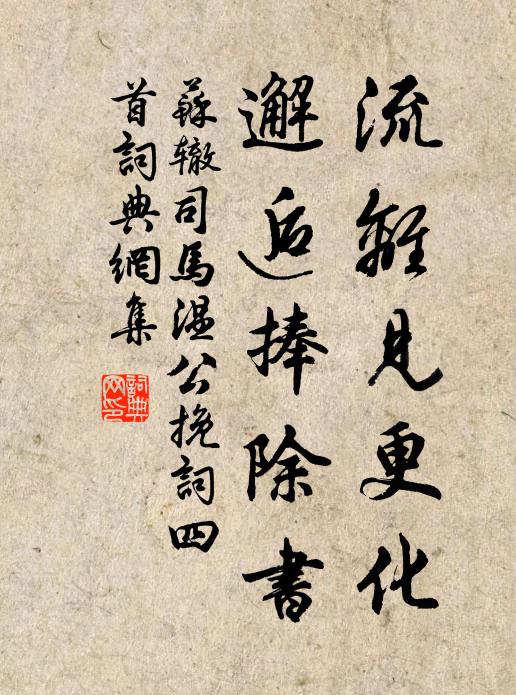 流離見更化
邂逅捧除書
蘇轍司馬溫公挽詞四
首詞典網集
詞典
网印